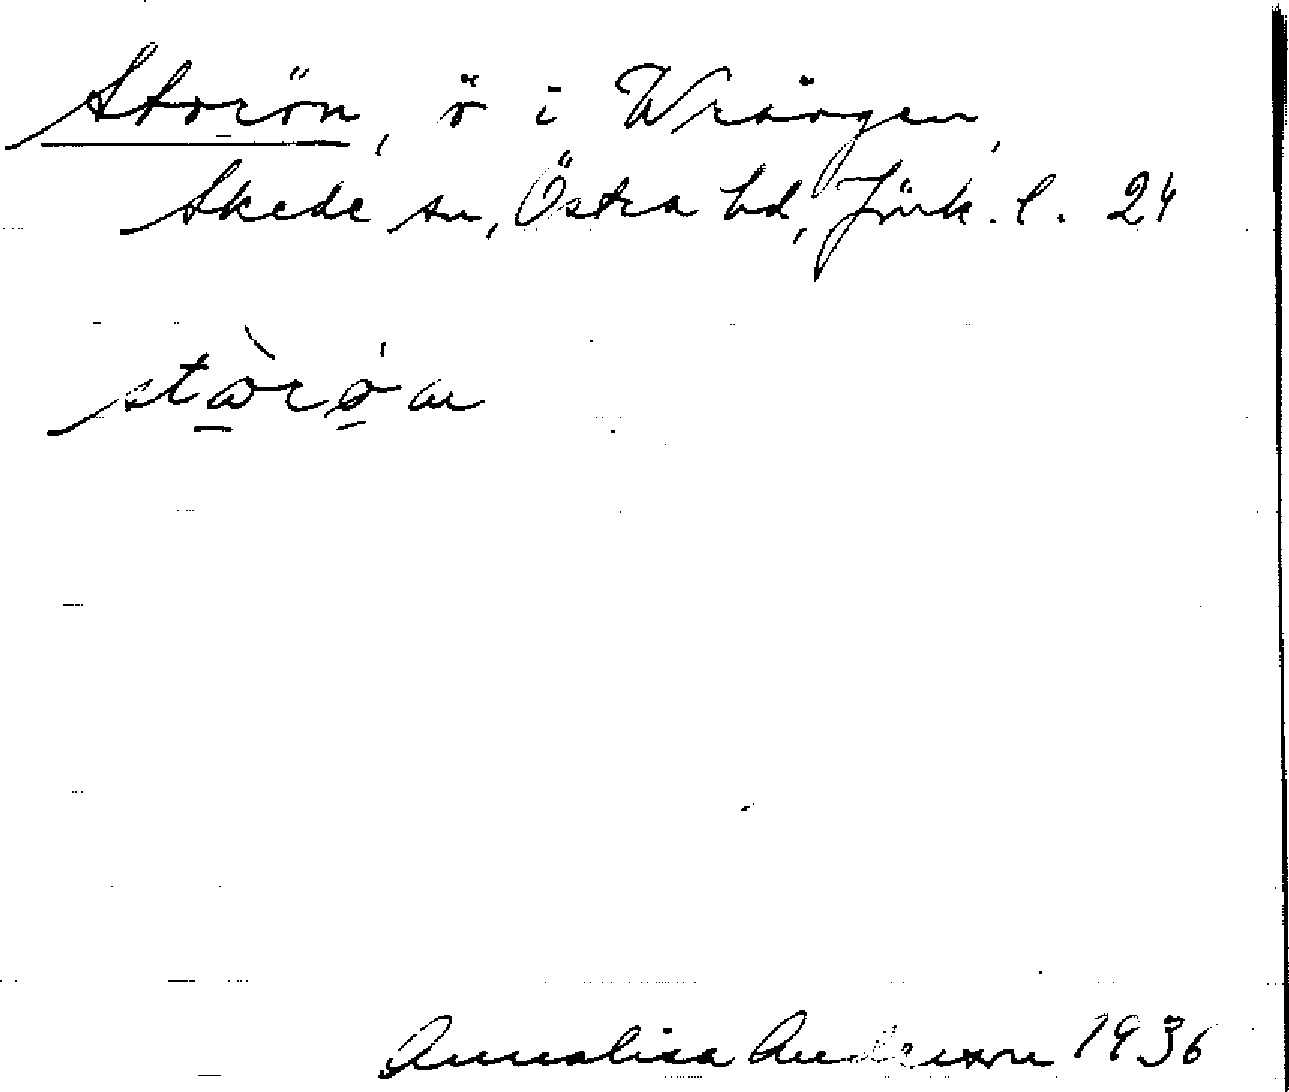 Storön, ö i Wrången,
Skede sn, Östra hd, Jönk. l. 24
stòrø´n
Annalisa Anderson 1936